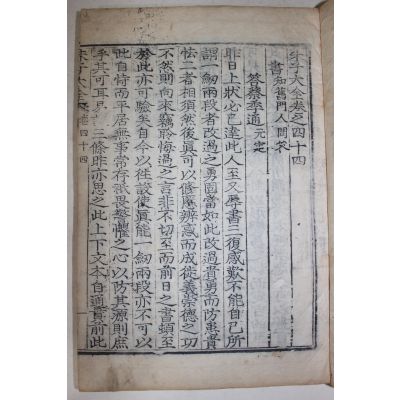 朱子大全卷之四十四
書 知舊門人問答
答蔡季通 元定
昨日上狀必已達此人至又辱書三復感歎不能自已所
謂一劒兩段者改過之勇固當如此改過貴勇而防患貴
怯二者相須然後眞可以修慝辨惑而成徙義崇德之功
不然則向來竊聆悔過之言非不切至而前日之書頓至
於此亦可驗矣自今以往設使眞能一劒兩段亦不可以
此自恃而平居無事常存祗畏警懼之心以防其源則庶
乎其可耳三條昨亦思之此上下文本自通貫前此
朱子大全 卷四十四